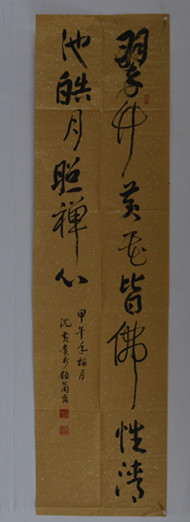 翠竹黄花皆佛性清
池皓月照禅心
甲午年梅月
沈